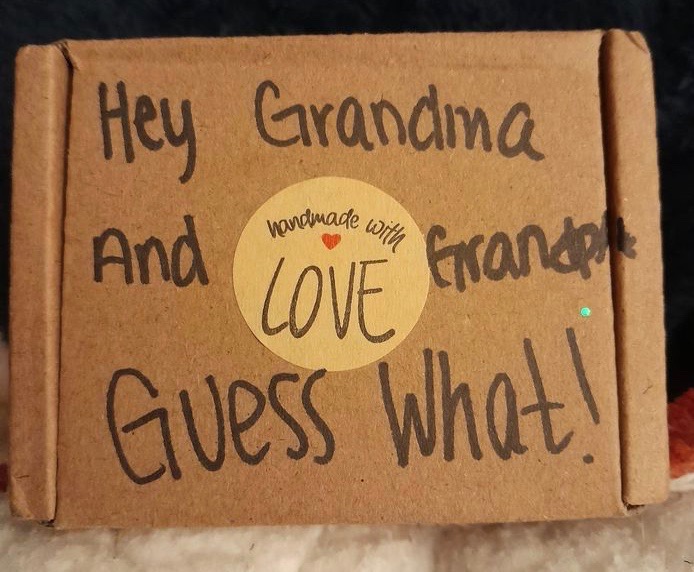 Hey Grandma
handmade with
LOVE
And Grandpa
Guess What!